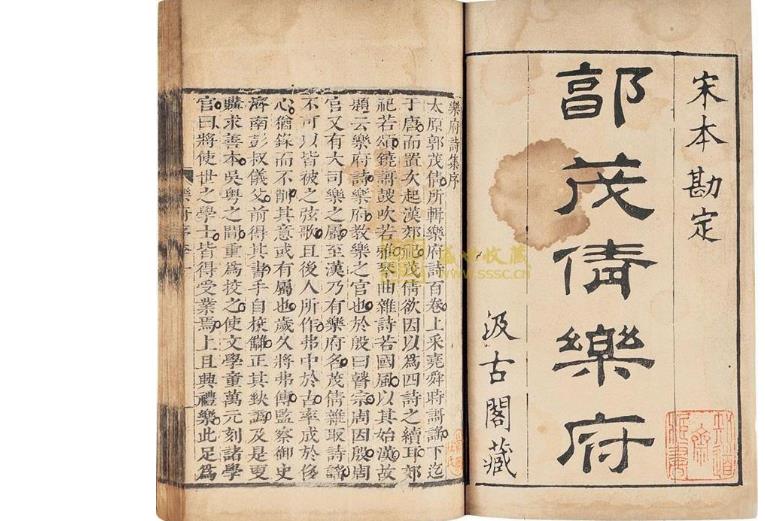 宋本勘定
郭茂倩樂府
汲古閣藏
樂府詩集序
太原郭茂倩所輯樂府詩百卷上采堯舜時謌謡下迄
于唐而置次起漢郊祀茂倩欲因以爲四詩之續耳郊
祀若頌鐃謌鼓吹若雅琴曲雜詩若國風以其始漢故
題云樂府詩樂府教樂之官也於殷曰瞽宗周因殷周
官又有大司樂之屬至漢乃有樂府名茂倩雜取詩謡
不可以皆被之弦歌且後人所作弗中於古率成於後
心猶錄而不削其意或有屬也歲久將弗傳監察御史
濟南彭叔儀父前得其書手自校讎正其缺譌及是更
購求善本吳粤之間重爲校之使文學童萬元刻諸學
官曰將使世之學士皆得受業焉上且興禮樂此足爲
樂府序
盛世收藏
www.sssc.cn